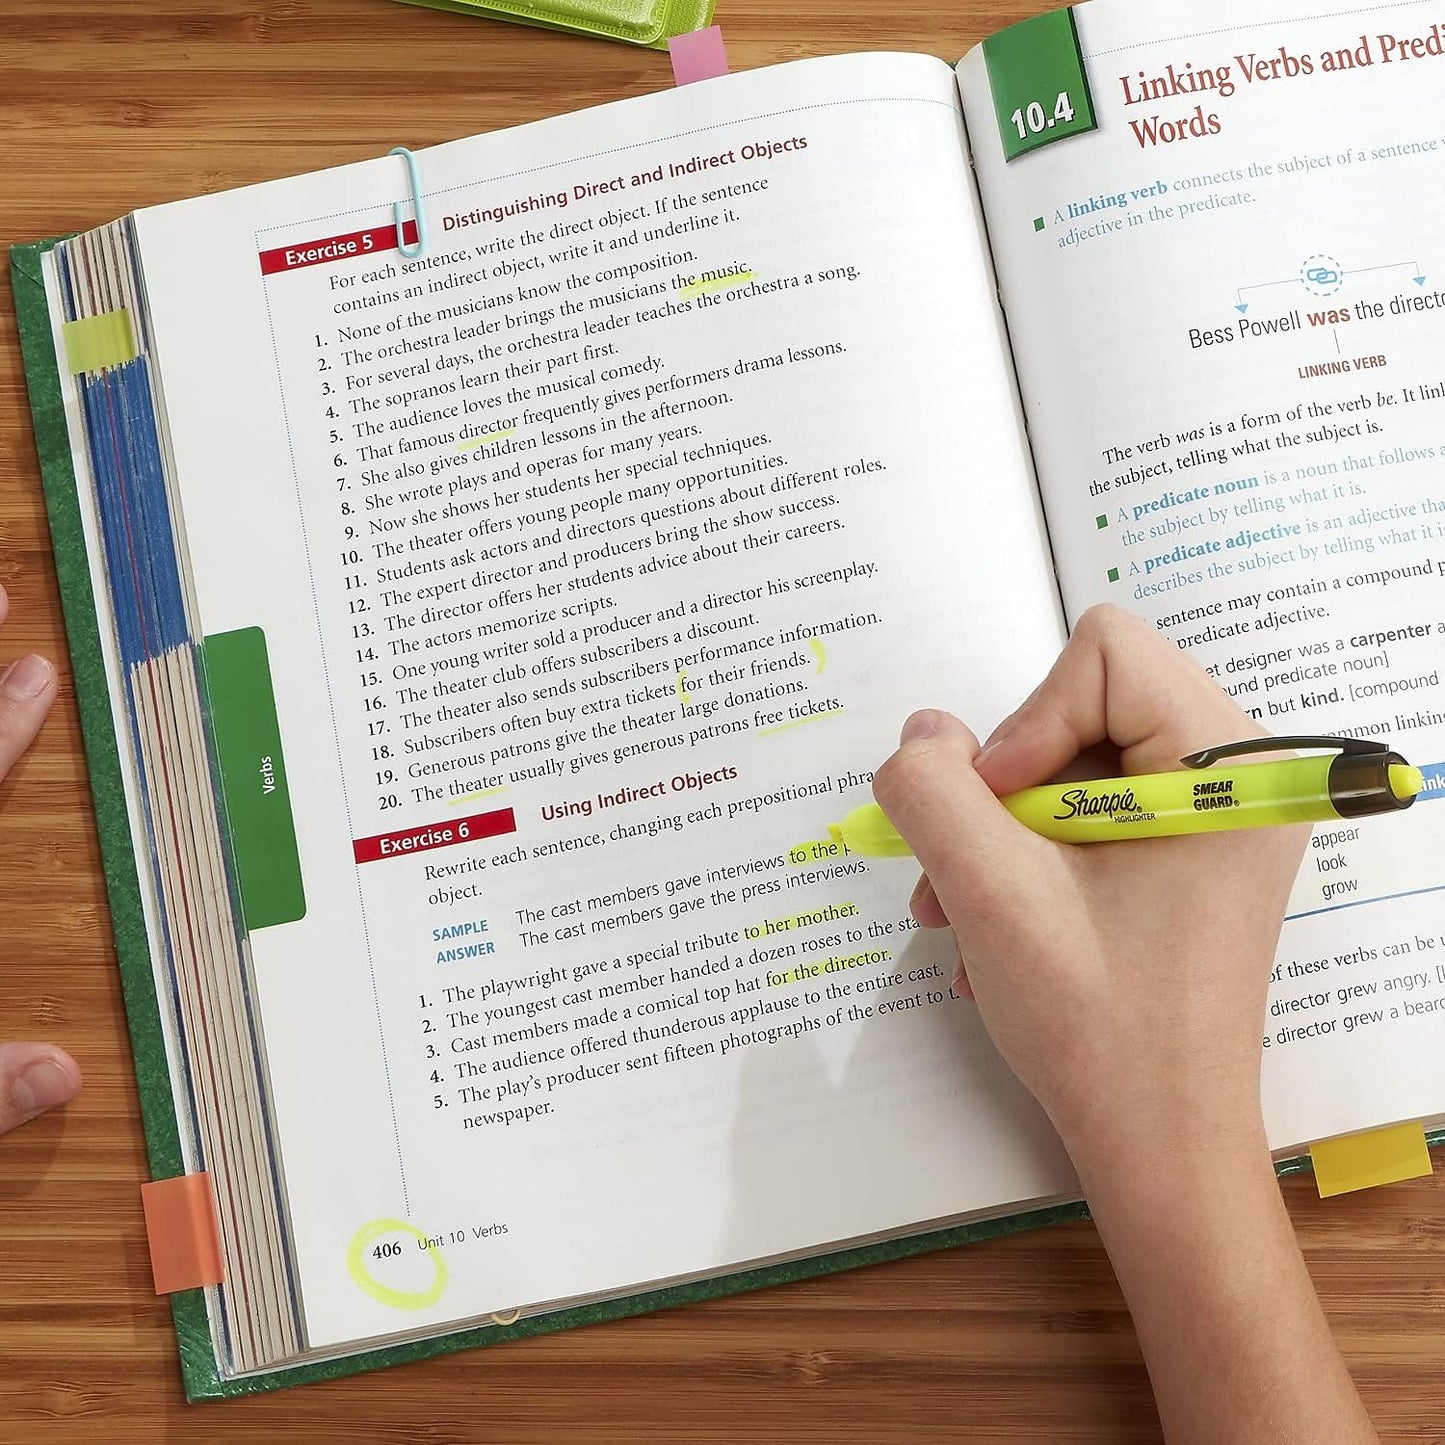 Exercise 5
Distinguishing Direct and Indirect Objects
For each sentence, write the direct object. If the sentence
contains an indirect object, write it and underline it.
1. None of the musicians know the composition.
2. The orchestra leader brings the musicians the music.
3. For several days, the orchestra leader teaches the orchestra a song.
4. The sopranos learn their part first.
5. The audience loves the musical comedy.
6. That famous director frequently gives performers drama lessons.
7. She also gives children lessons in the afternoon.
8. She wrote plays and operas for many years.
9. Now she shows her students her special techniques.
10. The theater offers young people many opportunities.
11. Students ask actors and directors questions about different roles.
12. The expert director and producers bring the show success.
13. The director offers her students advice about their careers.
14. The actors memorize scripts.
15. One young writer sold a producer and a director his screenplay.
16. The theater club offers subscribers a discount.
17. The theater also sends subscribers performance information.
18. Subscribers often buy extra tickets for their friends.
19. Generous patrons give the theater large donations.
20. The theater usually gives generous patrons free tickets.
Exercise 6
Using Indirect Objects
Rewrite each sentence, changing each prepositional
object.
SAMPLE The cast members gave interviews to the
ANSWER The cast members gave the press interviews.
1. The playwright gave a special tribute to her mother.
2. The youngest cast member handed a dozen roses to the
3. Cast members made a comical top hat for the director.
4. The audience offered thunderous applause to the entire cast.
5. The play's producer sent fifteen photographs of the event to
newspaper.
406 Unit 10 Verbs
Verbs
10.4
Linking Verbs and
Words
A linking verb connects the subject of a sentence
adjective in the predicate.
Bess Powell was the
LINKING VERB
The verb was is a form of the verb be. It
the subject, telling what the subject is.
A predicate noun is a noun that follows
the subject by telling what it is.
A predicate adjective is an adjective
describes the subject by telling what it
sentence may contain a compound
predicate adjective.
designer was a carpenter
predicate noun]
but kind. [compound
linking
appear
look
grow
of these verbs can be
director grew angry.
director grew a
Sharpie
HIGHLIGHTER
SMEAR
GUARD